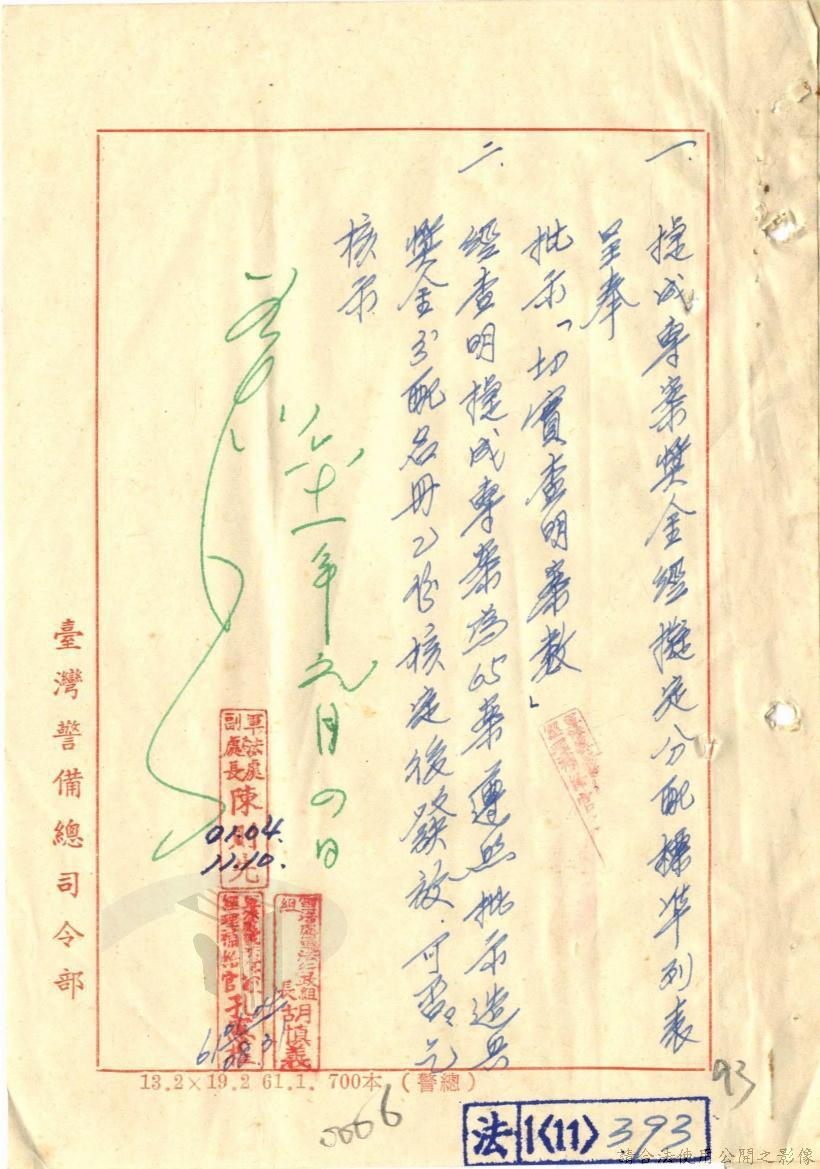 一、捷成專案獎金經擬定分配標準列表
呈奉
批示「切實查明案數」
二、經查明捷成專案為65案遵照批示造具
獎金分配名冊乙份核定後發放可否乞
核示
六十一年元月四日
軍法處
副處長
陳
01.04.
11.10.
軍法處軍法行政組
組長
胡慎義
臺灣警備總司令部
13.2×19.2 61.1. 700本 (警總)
0006
93
法 1〈11〉 393
請合法使用公開之影像